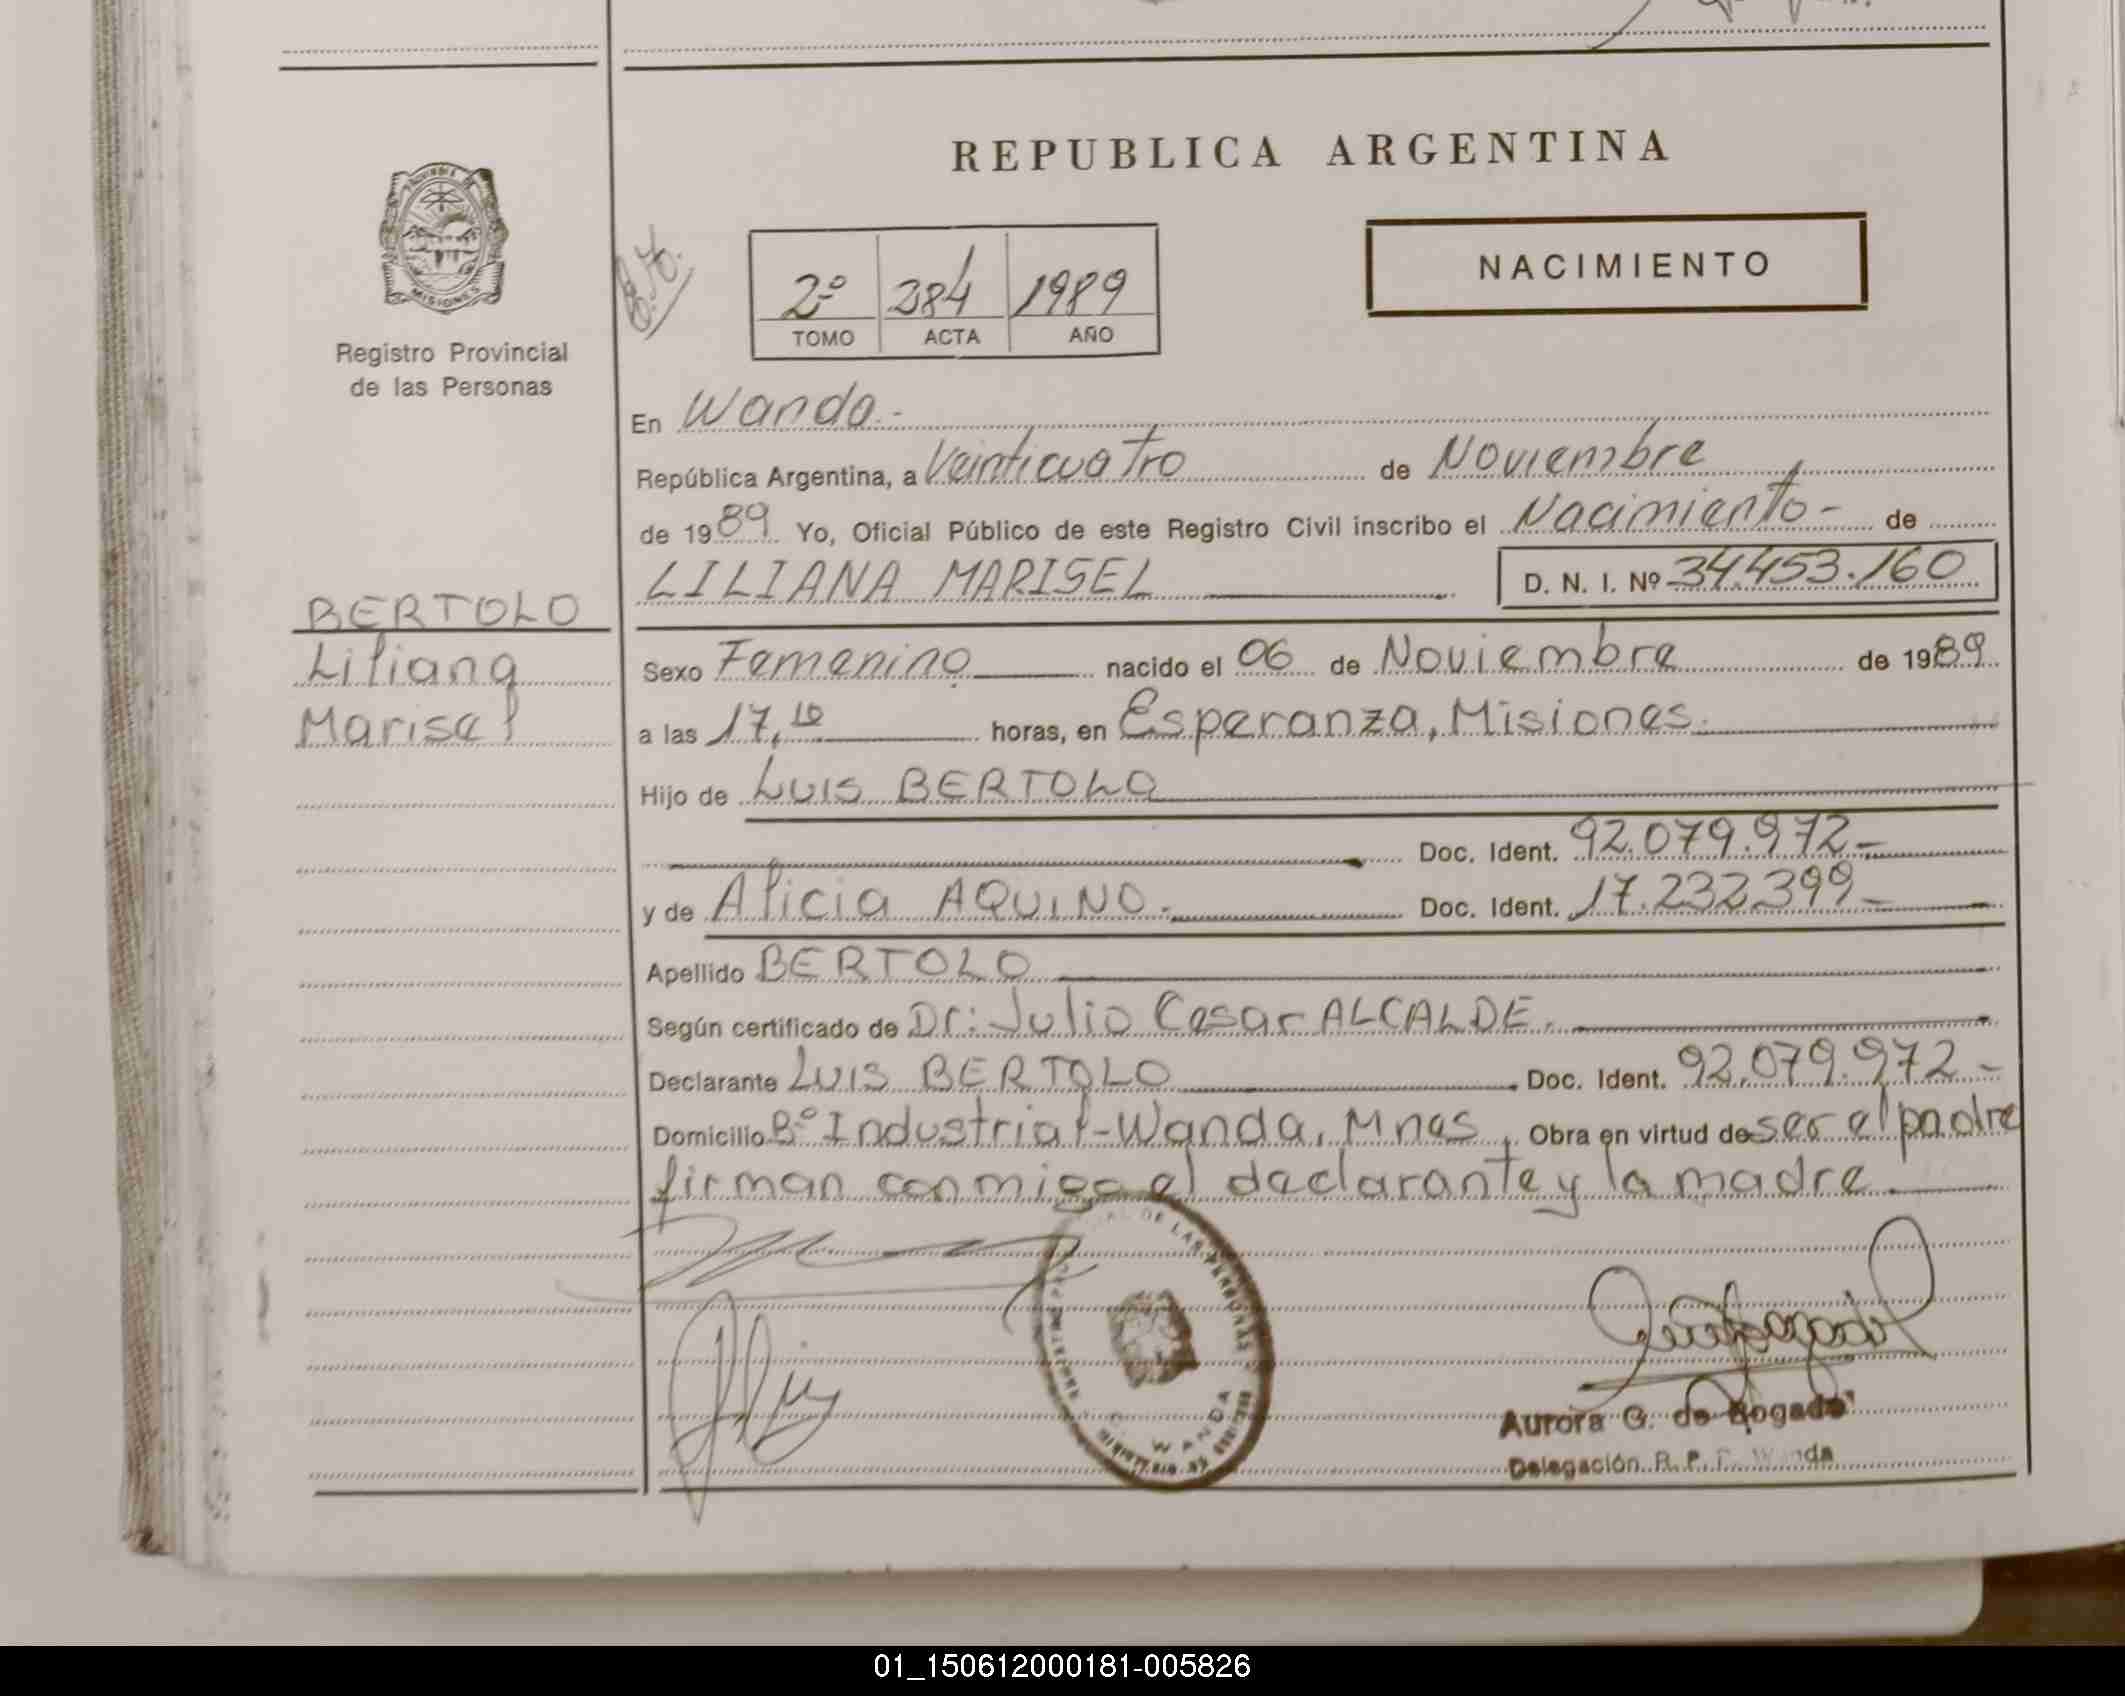 REPUBLICA ARGENTINA
PROVINCIA DE
MISIONES
Registro Provincial
de las Personas
2º 284 1989
TOMO ACTA AÑO
NACIMIENTO
En Wanda.-
República Argentina, a Veinticuatro de Noviembre
de 1989 Yo, Oficial Público de este Registro Civil inscribo el Nacimiento- de
LILIANA MARISEL D. N. I. Nº 34.453.160
BERTOLO
Liliana
Marisel
Sexo Femenino nacido el 06 de Noviembre de 1989
a las 17,10 horas, en Esperanza, Misiones.
Hijo de Luis BERTOLO
Doc. Ident. 92.079.972-
y de Alicia AQUINO. Doc. Ident. 17.232.399-
Apellido BERTOLO
Según certificado de Dr: Julio Cesar ALCALDE.
Declarante Luis BERTOLO Doc. Ident. 92.079.972-
Domicilio Bº Industrial-Wanda, Mnes. Obra en virtud de ser el padre
firman conmigo el declarante y la madre.
DE LAS PERSONAS
WANDA
Aurora G. de Bogado
Delegación R. P. P. Wanda
01_150612000181-005826